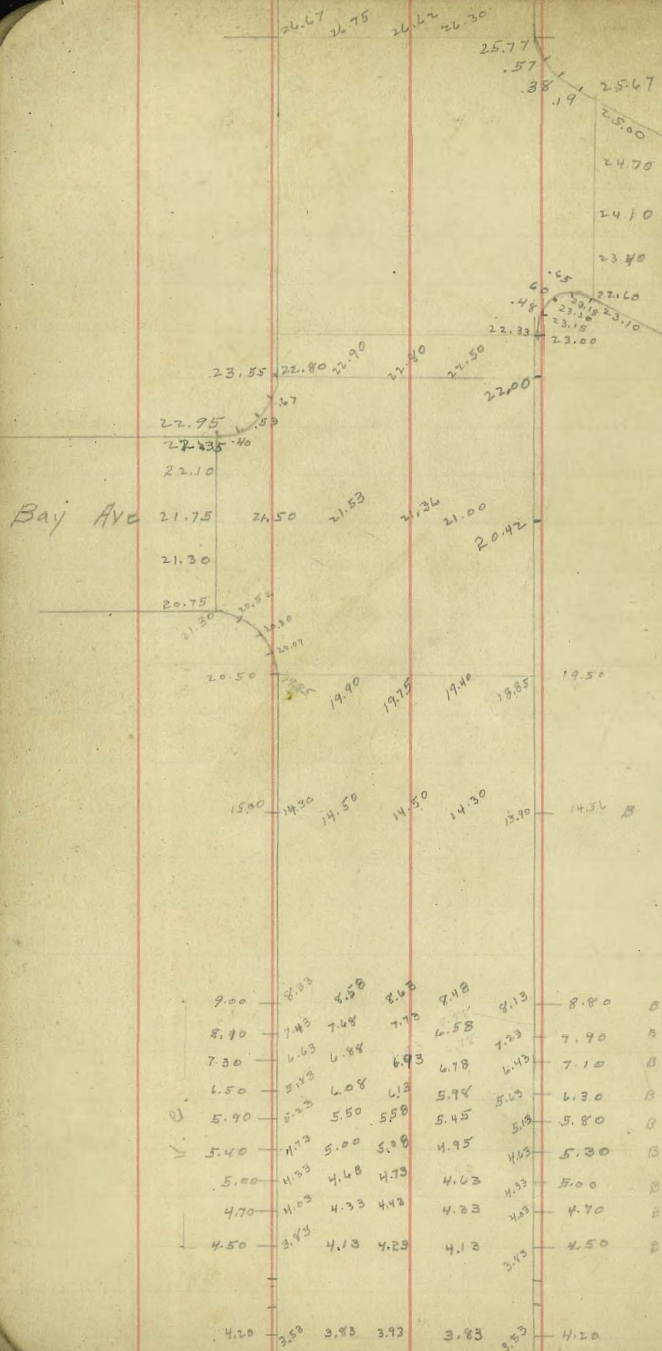 26.67 26.75 26.62 26.30
25.77
.57
.38 25.67
.19
25.00
24.70
24.10
23.40
.65
60 22.60
.48 23.18 23.10
23.20
23.15
22.33 23.00
23.55 22.80 22.90 22.80 22.50
22.00
.67
22.95 .53
.40
22.10
21.53 21.36 21.00
Bay Ave 21.75 21.50
20.42
21.30
20.75 20.52
21.30 20.30
20.07
20.50 19.90 19.75 19.40 18.85 19.50
15.00 14.30 14.50 14.50 14.30 13.90 14.56 B
9.00 8.33 8.58 8.63 8.48 8.13 8.80 B
8.10 7.43 7.68 7.73 6.58 7.23 7.90 B
7.30 6.63 6.88 6.93 6.78 6.43 7.10 B
6.50 5.83 6.08 6.13 5.98 5.63 6.30 B
5.90 5.23 5.50 5.58 5.45 5.13 5.80 B
V.C.
5.40 4.73 5.00 5.08 4.95 4.63 5.30 B
5.00 4.33 4.68 4.73 4.63 4.33 5.00 B
4.70 4.03 4.33 4.43 4.33 4.03 4.70 B
4.50 3.83 4.13 4.23 4.13 3.83 4.50 B
4.20 3.53 3.83 3.93 3.83 3.53 4.20